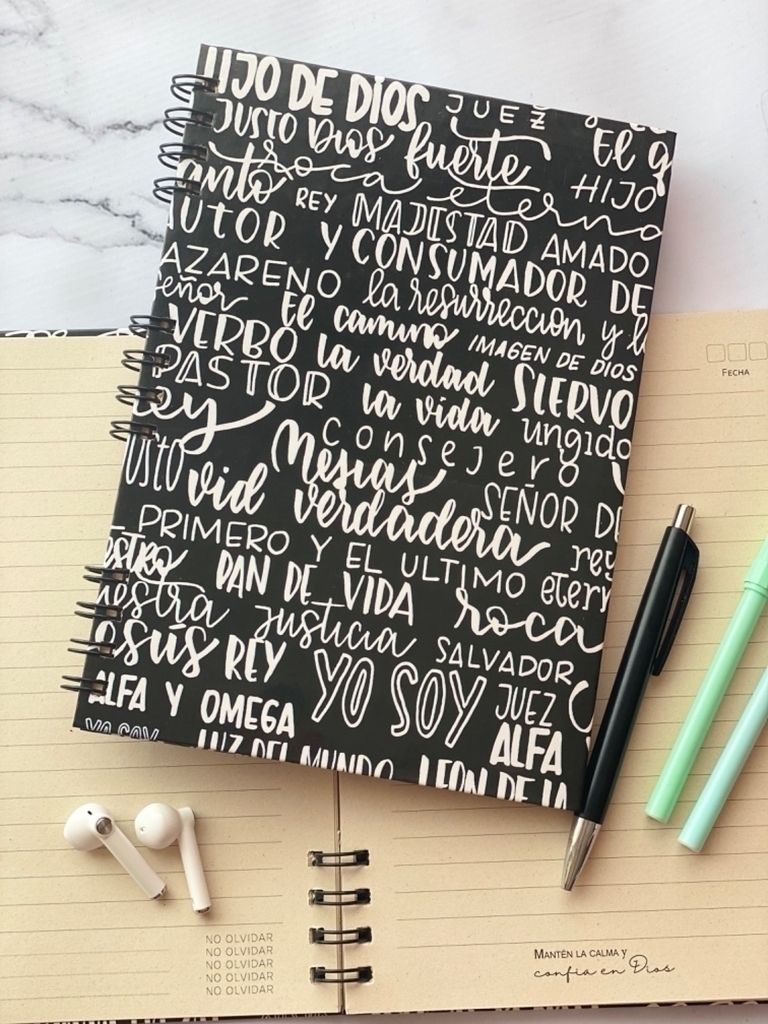 HIJO DE DIOS JUEZ
JUSTO DIOS fuerte El
roca eterna HIJO
REY MAJESTAD AMADO
AUTOR Y CONSUMADOR DE
NAZARENO la resurrección y
El camino IMAGEN DE DIOS
VERBO la verdad SIERVO
PASTOR la vida ungido
Rey consejero
JUSTO Mesías SEÑOR
vid verdadera
PRIMERO Y EL ULTIMO
PAN DE VIDA roca
justicia
Jesús REY SALVADOR
ALFA Y OMEGA YO SOY JUEZ
YO SOY ALFA
LUZ DEL MUNDO LEON DE LA
FECHA
NO OLVIDAR
NO OLVIDAR
NO OLVIDAR
NO OLVIDAR
NO OLVIDAR
MANTÉN LA CALMA Y
confía en Dios